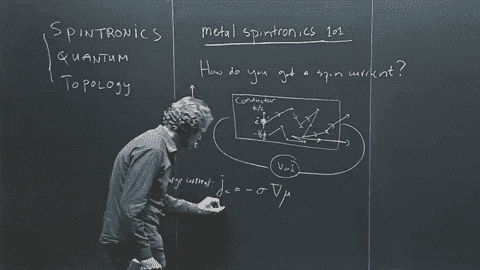 SPINTRONICS
QUANTUM
TOPOLOGY
metal spintronics 101
How do you get a spin current?
Conductor
V=I
current: j_c = -σ ∇μ